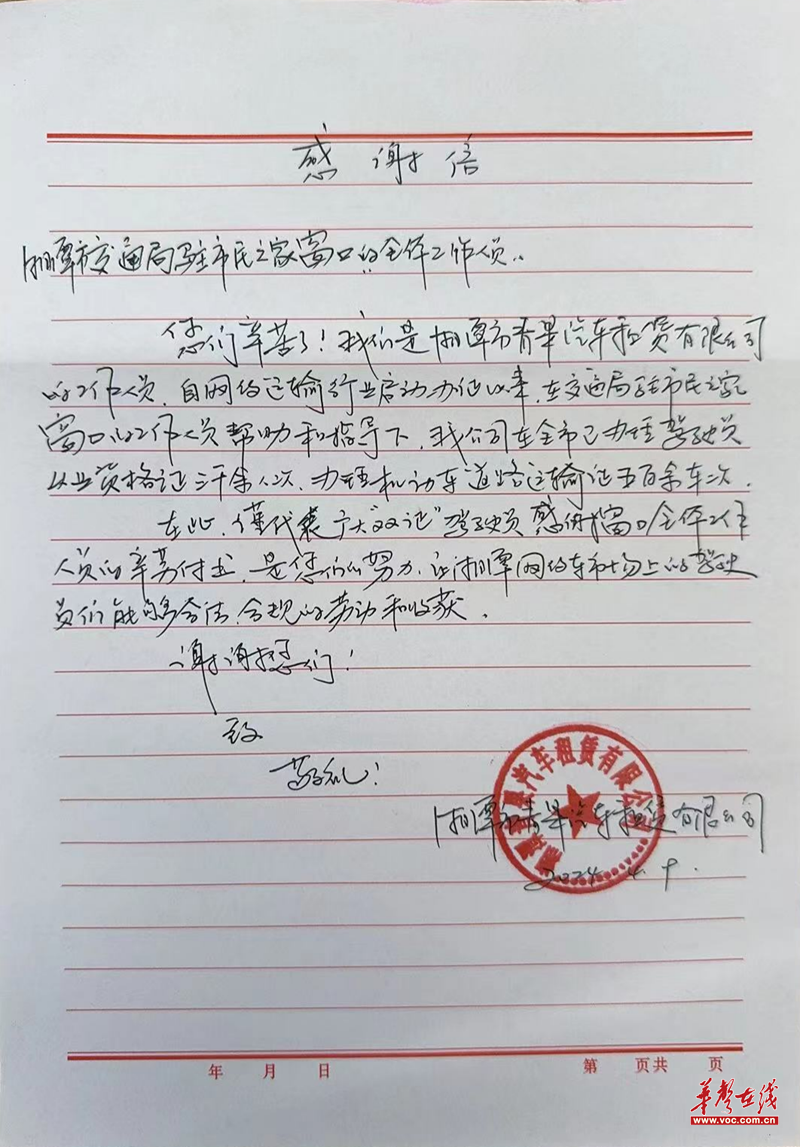 感谢信
湘潭市交通局驻市民之家窗口的全体工作人员：
您们辛苦了！我们是湘潭市青果汽车租赁有限公司
的工作人员，自网约运输行业启动办证以来，在交通局驻市民之家
窗口的工作人员帮助和指导下，我公司在全市已办理驾驶员
从业资格证三千余人次，办理机动车道路运输证五百余车次。
在此，仅代表广大“双证”驾驶员感谢窗口全体工作
人员的辛苦付出，是您们的努力，让湘潭网约车市场上的驾驶
员们能够合法、合规的劳动和收获。
谢谢您们！
致
敬礼！
汽车租赁有限公司
湘潭市青果汽车租赁有限公司
2024.4.9.
年 月 日 第 页共 页
华声在线
www.voc.com.cn